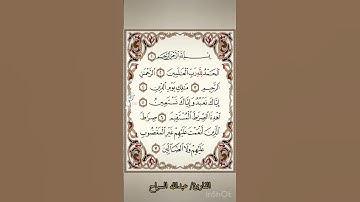 بِسْمِ اللَّهِ الرَّحْمَٰنِ الرَّحِيمِ
الْحَمْدُ لِلَّهِ رَبِّ الْعَالَمِينَ ۝ الرَّحْمَٰنِ
الرَّحِيمِ ۝ مَالِكِ يَوْمِ الدِّينِ ۝
إِيَّاكَ نَعْبُدُ وَإِيَّاكَ نَسْتَعِينُ ۝
اهْدِنَا الصِّرَاطَ الْمُسْتَقِيمَ ۝ صِرَاطَ
الَّذِينَ أَنْعَمْتَ عَلَيْهِمْ غَيْرِ الْمَغْضُوبِ
عَلَيْهِمْ وَلَا الضَّالِّينَ ۝
InShOt